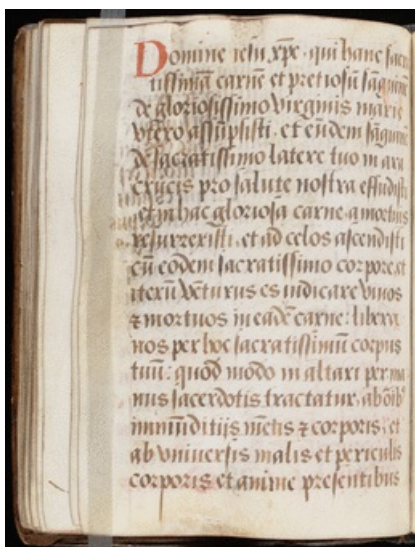 Domine iesu xpe qui hanc sacra
tissimā carnē et pretiosū sāguinē
de gloriosissimo virginis marie
vtero assūpsisti. et eūdem sāguinē
de sacratissimo latere tuo in ara
crucis pro salute nostra effudisti
et in hac gloriosa carne a mortuis
resurrexisti. et ad celos ascendisti
cū eodem sacratissimo corpore. et
iterū vēturus es iudicare viuos
⁊ mortuos in eadē carne: libera
nos per hoc sacratissimū corpus
tuū: quod modo in altari per ma
nus sacerdotis tractatur. ab oīb9
inmūditijs mētis ⁊ corporis: et
ab vniuersis malis et periculis
corporis et anime presentibus